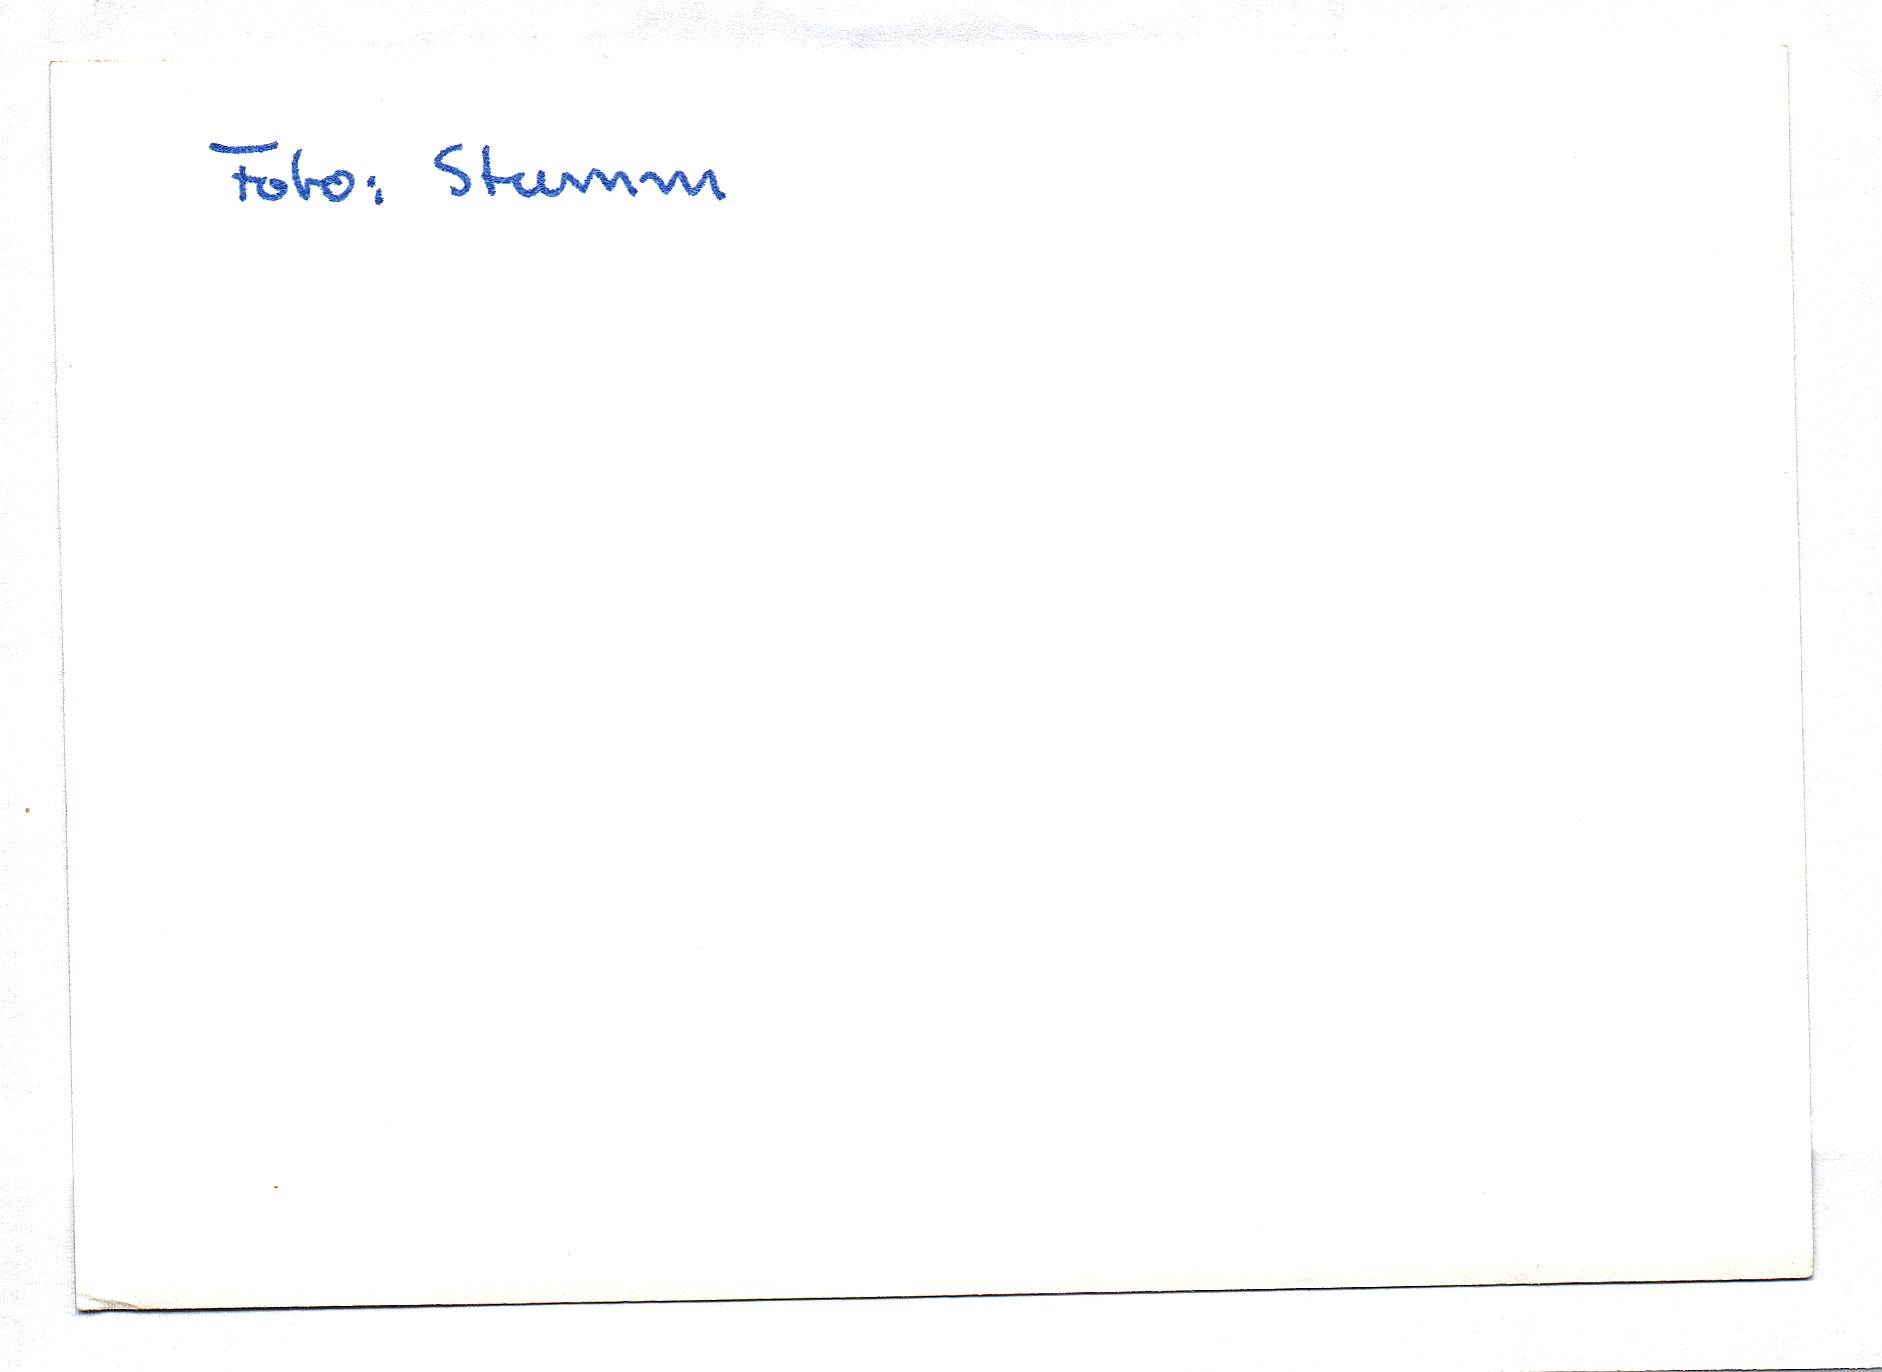 Foto: Stamm